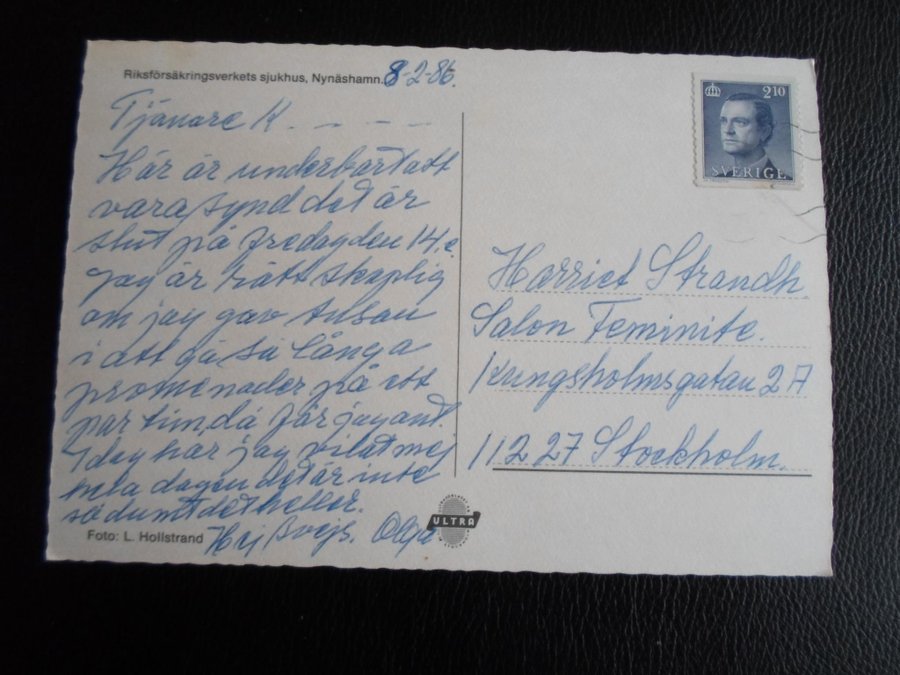 Riksförsäkringsverkets sjukhus, Nynäshamn. 8-2-86.
Tjänare K - - - -
Här är underbart att
vara synd det är
slut på fredag den 14.e
jag är rätt skaplig
om jag gav tusan
i att gå så långa
promenader på ett
par tim, då får jag ont.
Idag har jag vilat mej
hela dagen det är inte
så dumt det heller.
Hej Olga
Foto: L. Hollstrand
ULTRA
2 10
SVERIGE
Harriet Strandh.
Salon Feminite.
Kungsholmsgatan 27
112 27 Stockholm.